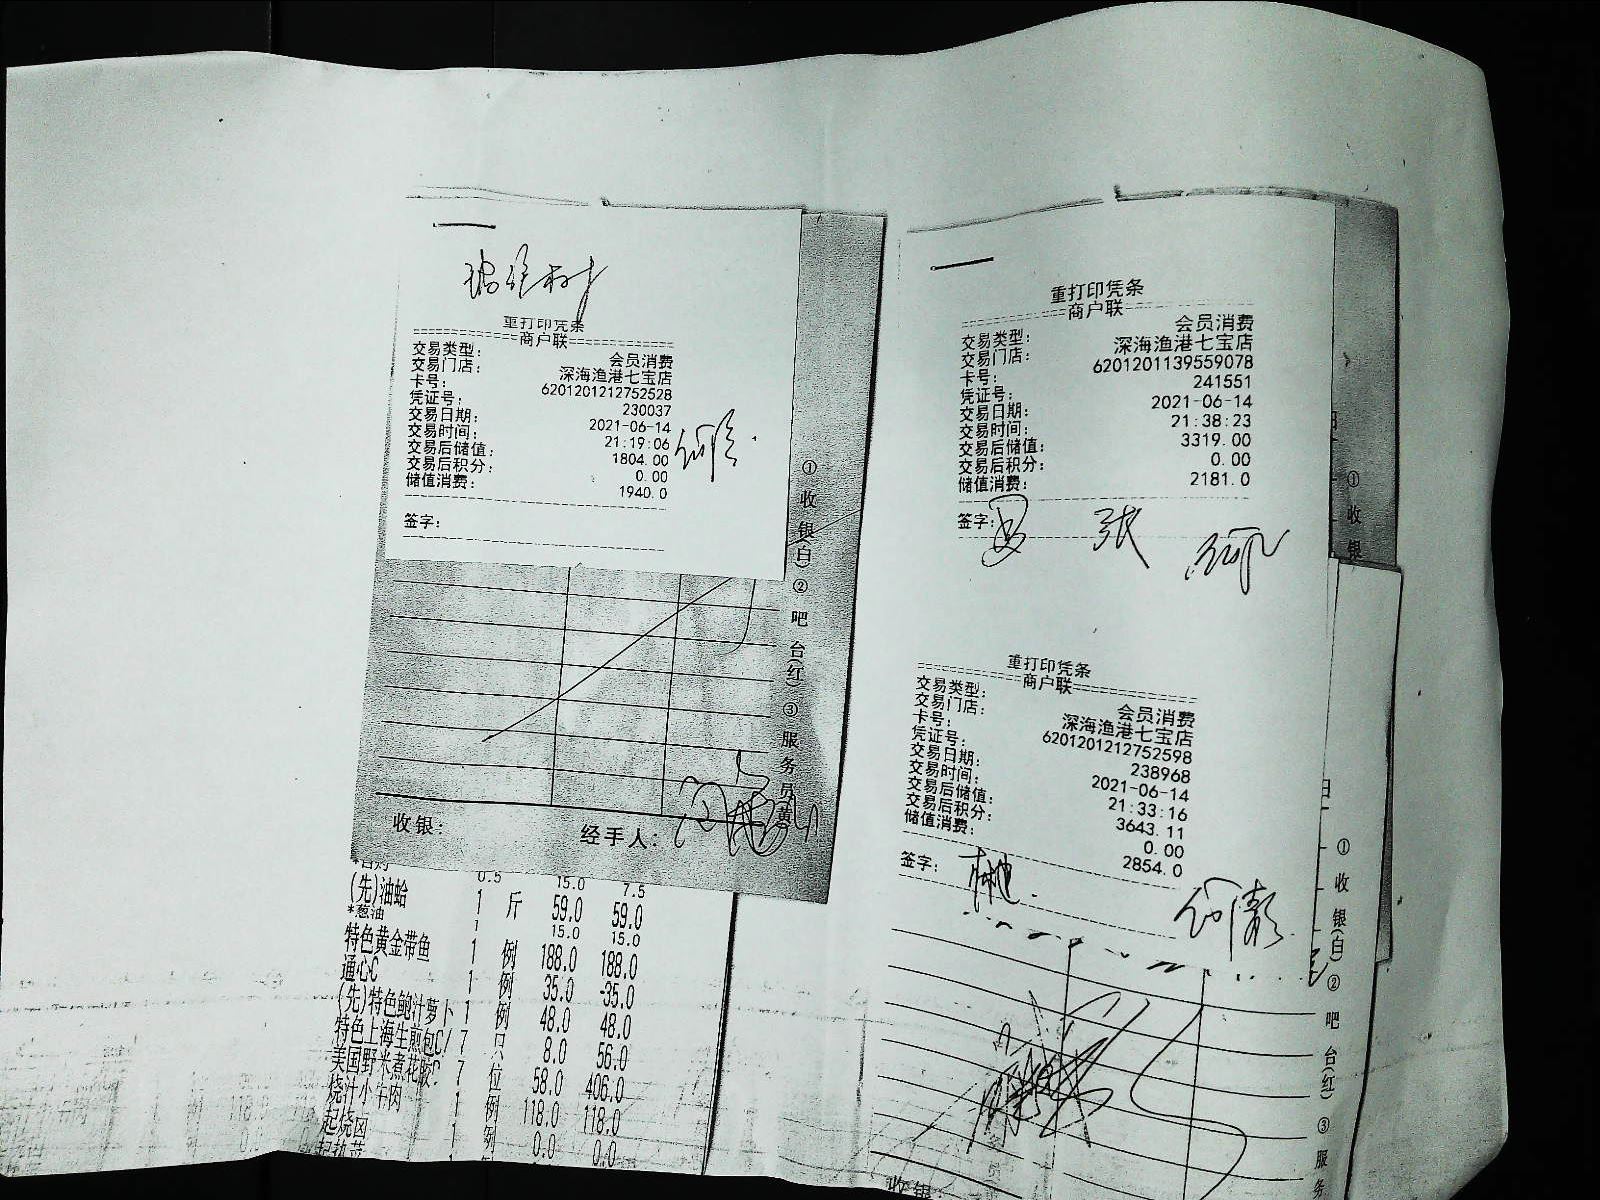 重打印凭条
商户联
交易类型: 会员消费
交易门店: 深海渔港七宝店
卡号: 6201201212752528
凭证号: 230037
交易日期: 2021-06-14
交易时间: 21:19:06
交易后储值: 1804.00
交易后积分: 0.00
储值消费: 1940.0
签字:
①收银(白)②吧台(红)③服务员(黄)
收银: 经手人:
0.5 15.0 7.5
(先)油蛤 1 斤 59.0 59.0
*葱油 1 15.0 15.0
特色黄金带鱼 1 例 188.0 188.0
通心C 1 例 35.0 -35.0
(先)特色鲍汁萝卜 1 例 48.0 48.0
特色上海生煎包C/ 7 只 8.0 56.0
美国野米煮花胶C 7 位 58.0 406.0
烧汁小牛肉 1 例 118.0 118.0
起烧卤 1 例 0.0 0.0
重打印凭条
商户联
交易类型: 会员消费
交易门店: 深海渔港七宝店
卡号: 6201201139559078
凭证号: 241551
交易日期: 2021-06-14
交易时间: 21:38:23
交易后储值: 3319.00
交易后积分: 0.00
储值消费: 2181.0
签字: 张
①收银
重打印凭条
商户联
交易类型: 会员消费
交易门店: 深海渔港七宝店
卡号: 6201201212752598
凭证号: 238968
交易日期: 2021-06-14
交易时间: 21:33:16
交易后储值: 3643.11
交易后积分: 0.00
储值消费: 2854.0
签字:
①收银(白)②吧台(红)③服务
收银: